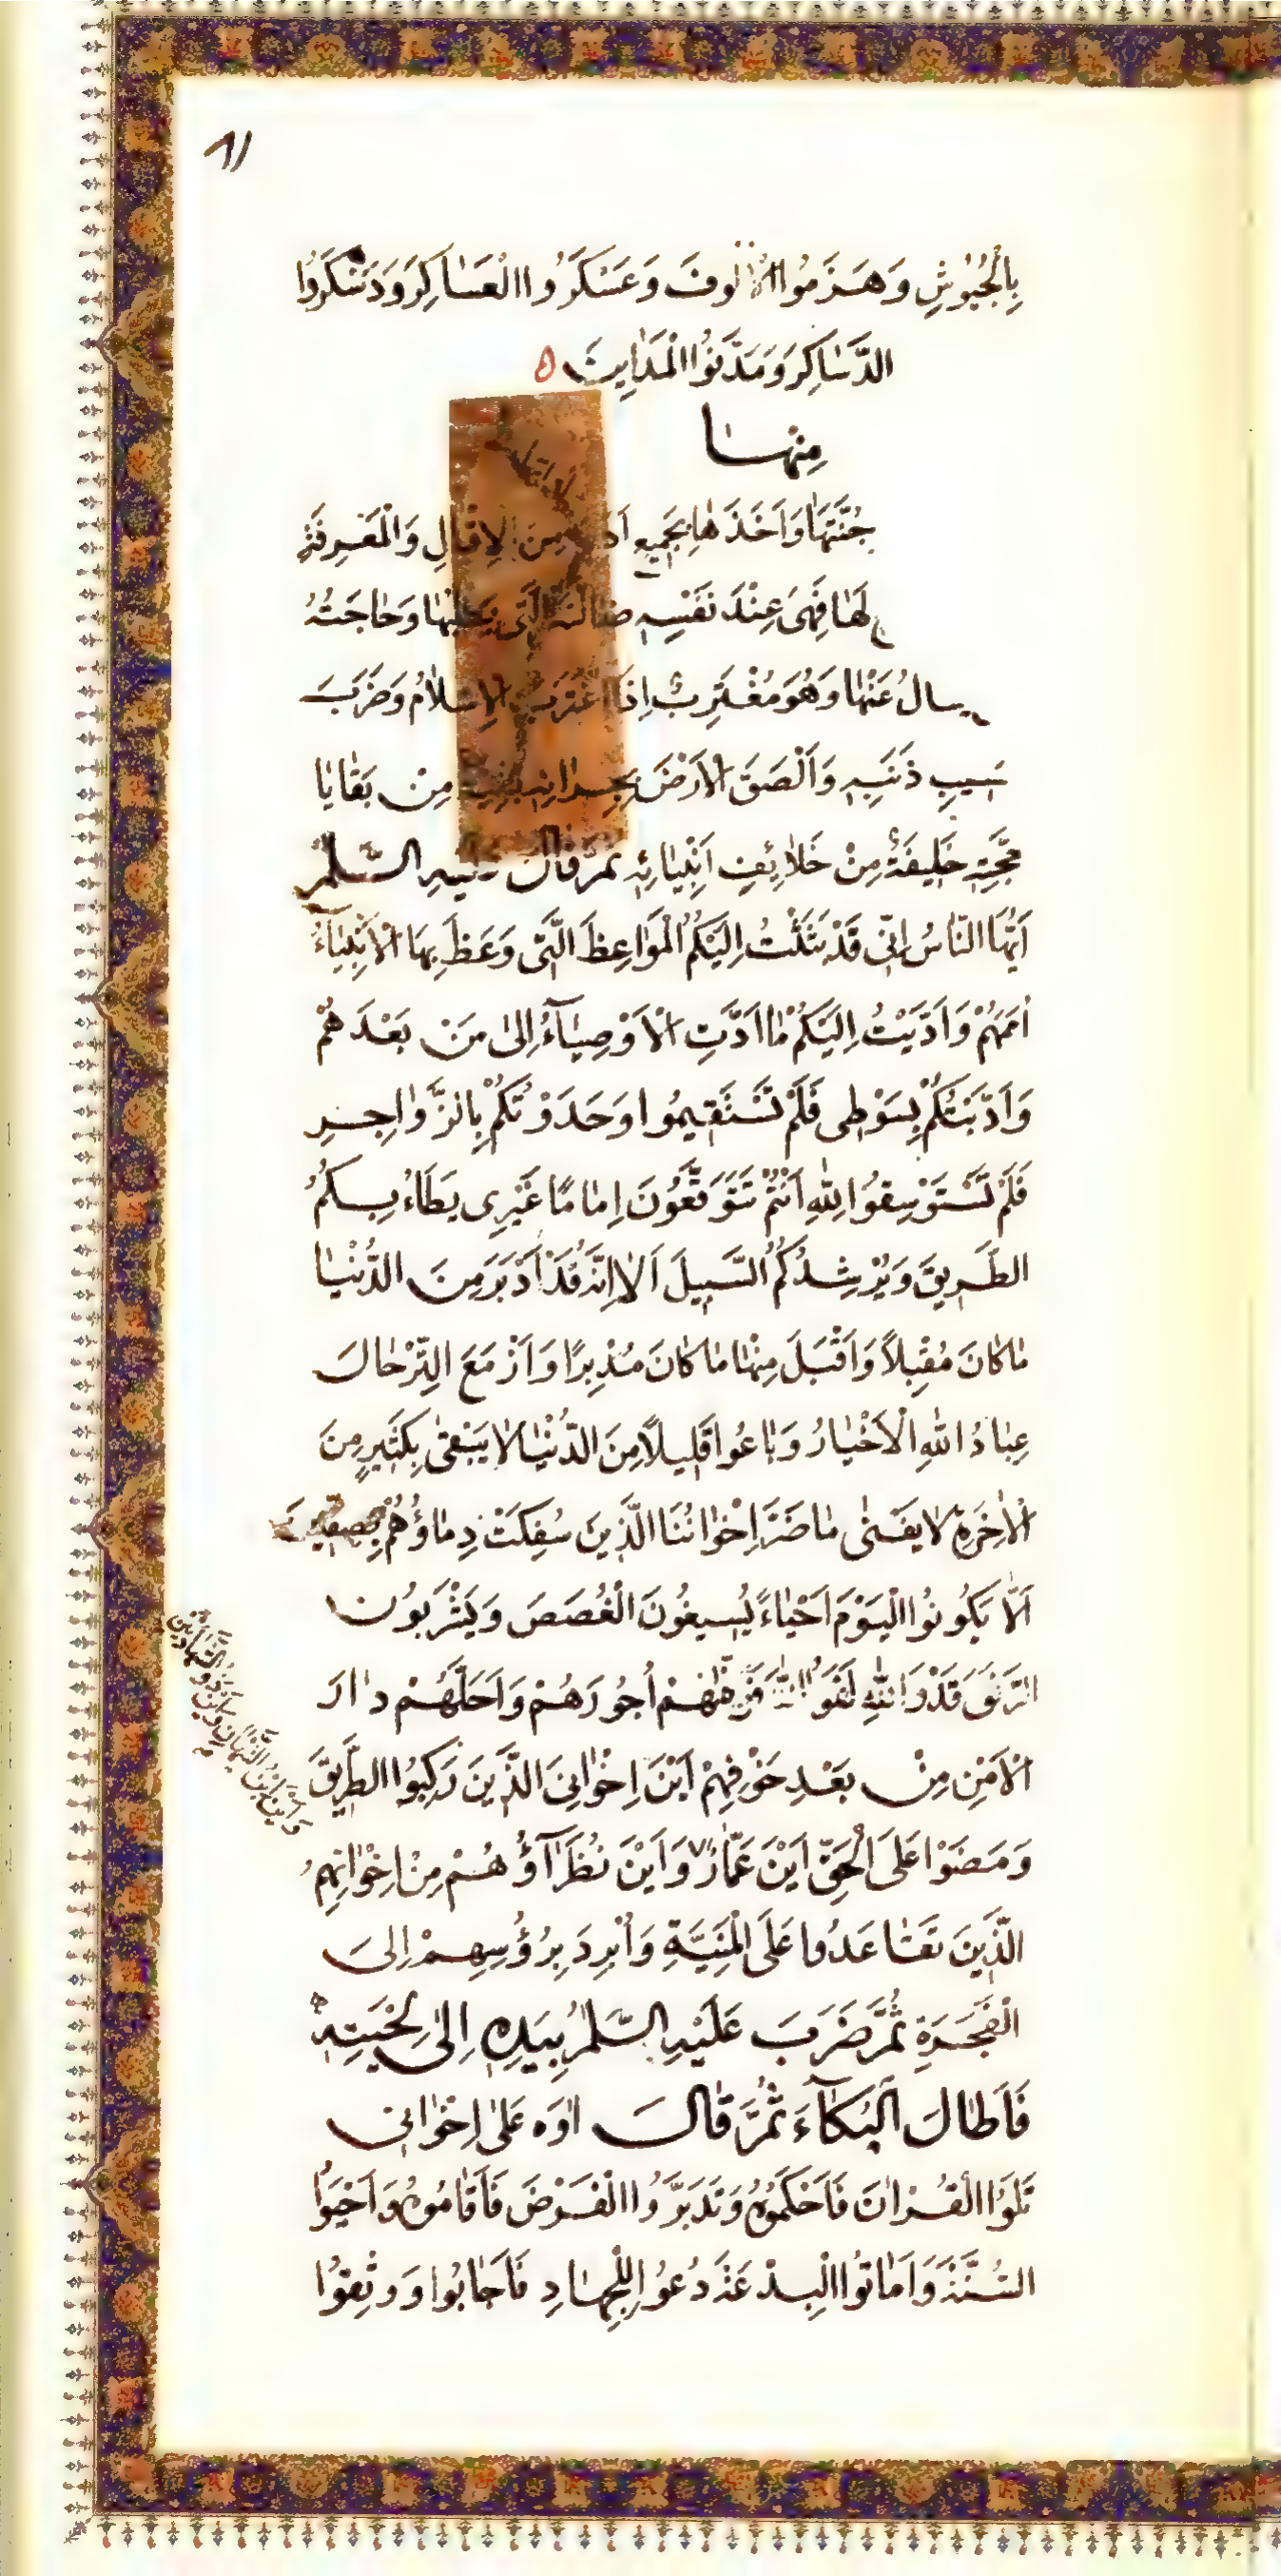 ٨١
بِالْجُيُوشِ وَهَزَمُوا الْأُلُوفَ وَعَسْكَرُوا الْعَسَاكِرَ وَدَسْكَرُوا
الدَّسَاكِرَ وَمَدَّنُوا الْمَدَايِنَ ه
مِنْهَا
جُنَّتَهَا وَاَخَذَهَا بِجَمِيعِ مِنَ الْاِقْبَالِ وَالْمَعْرِفَةِ
لَهَا فَهِيَ عِنْدَ نَفْسِهِ ضَالَّتُهُ الَّتِي يَطْلُبُهَا وَحَاجَتُهُ
يسالُ عَنْهَا وَهُوَ مُغْتَرِبٌ اِذَا اغْتَرَبَ الْاِسْلَامُ وَضَرَبَ
بِعَسِيبِ ذَنَبِهِ وَاَلْصَقَ الْاَرْضَ بِجِرَانِهِ بَقِيَّةٌ مِنْ بَقَايَا
حُجَّتِهِ خَلِيفَةٌ مِنْ خَلَائِفِ اَنْبِيَائِهِ ثُمَّ قَالَ عَلَيْهِ السَّلٰمُ
اَيُّهَا النَّاسُ اِنِّي قَدْ بَثَثْتُ اِلَيْكُمُ الْمَوَاعِظَ الَّتِي وَعَظَ بِهَا الْاَنْبِيَآءُ
اُمَمَهُمْ وَاَدَّيْتُ اِلَيْكُمْ مَا اَدَّتِ الْاَوْصِيَآءُ اِلىٰ مَنْ بَعْدَهُمْ
وَاَدَّبْتُكُمْ بِسَوْطِي فَلَمْ تَسْتَقِيمُوا وَحَدَوْتُكُمْ بِالزَّوَاجِرِ
فَلَمْ تَسْتَوْسِقُوا لِلّٰهِ اَنْتُمْ تَتَوَقَّعُونَ اِمَامًا غَيْرِي يَطَاءُ بِكُمُ
الطَّرِيقَ وَيُرْشِدُكُمُ السَّبِيلَ اَلَا اِنَّهُ قَدْ اَدْبَرَ مِنَ الدُّنْيَا
مَا كَانَ مُقْبِلًا وَاَقْبَلَ مِنْهَا مَا كَانَ مُدْبِرًا وَاَزْمَعَ التِّرْحَالَ
عِبَادُ اللّٰهِ الْاَخْيَارُ وَبَاعُوا قَلِيلًا مِنَ الدُّنْيَا لَا يَبْقىٰ بِكَثِيرٍ مِنَ
الْاٰخِرَةِ لَا يَفْنىٰ مَا ضَرَّ اِخْوَانَنَا الَّذِينَ سُفِكَتْ دِمَاؤُهُمْ بِصِفِّينَ
اَلَّا يَكُونُوا الْيَوْمَ اَحْيَاءً يُسِيغُونَ الْغُصَصَ وَيَشْرَبُونَ
الرَّنَقَ قَدْ وَاللّٰهِ لَقُوا اللّٰهَ فَوَفّٰهُمْ اُجُورَهُمْ وَاَحَلَّهُمْ دَارَ
الْاَمْنِ مِنْ بَعْدِ خَوْفِهِمْ اَيْنَ اِخْوَانِيَ الَّذِينَ رَكِبُوا الطَّرِيقَ
وَمَضَوْا عَلَى الْحَقِّ اَيْنَ عَمَّارٌ وَاَيْنَ نُظَرَآؤُهُمْ مِنْ اِخْوَانِهِمُ
وَاَيْنَ ابْنُ التَّيِّهَانِ وَاَيْنَ ذُو الشَّهَادَتَيْنِ
الَّذِينَ تَعَاقَدُوا عَلَى الْمَنِيَّةِ وَاُبْرِدَ بِرُؤُسِهِمْ اِلىَ
الْفَجَرَةِ ثُمَّ ضَرَبَ عَلَيْهِ السَّلٰمُ بِيَدِهِ اِلىٰ لِحْيَتِهِ
فَاَطَالَ الْبُكَآءَ ثُمَّ قَالَ اَوْهِ عَلىٰ اِخْوَانِي
تَلَوُا الْقُرْاٰنَ فَاَحْكَمُوهُ وَتَدَبَّرُوا الْفَرْضَ فَاَقَامُوهُ وَاَحْيَوُا
السُّنَّةَ وَاَمَاتُوا الْبِدْعَةَ دُعُوا لِلْجِهَادِ فَاَجَابُوا وَوَثِقُوا